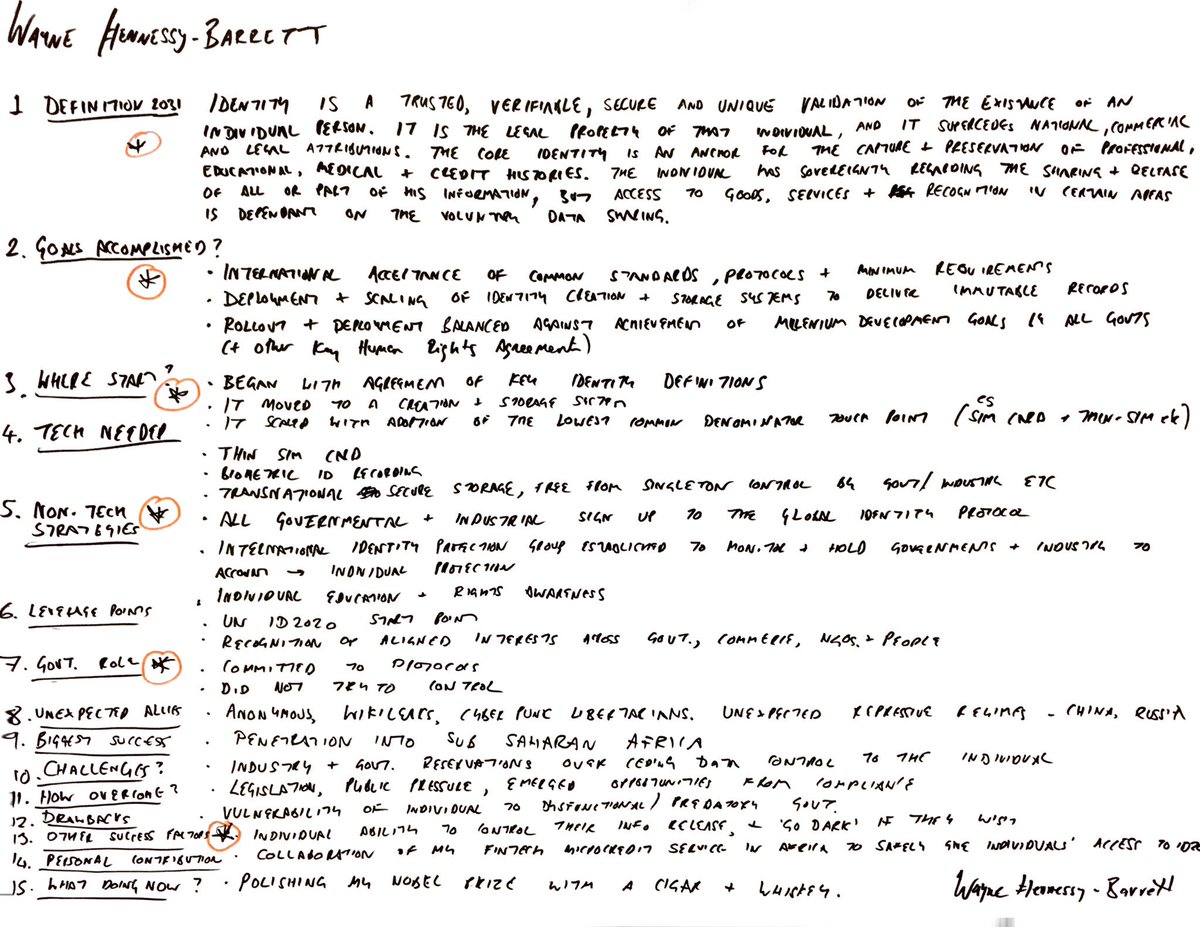 WAYNE HENNESSY-BARRETT
1 DEFINITION 2031 IDENTITY IS A TRUSTED, VERIFIABLE, SECURE AND UNIQUE VALIDATION OF THE EXISTANCE OF AN
INDIVIDUAL PERSON. IT IS THE LEGAL PROPERTY OF THAT INDIVIDUAL, AND IT SUPERCEDES NATIONAL, COMMERCIAL
AND LEGAL ATTRIBUTIONS. THE CORE IDENTITY IS AN ANCHOR FOR THE CAPTURE + PRESERVATION OF PROFESSIONAL,
EDUCATIONAL, MEDICAL + CREDIT HISTORIES. THE INDIVIDUAL HAS SOVEREIGNTY REGARDING THE SHARING + RELEASE
OF ALL OR PART OF HIS INFORMATION, BUT ACCESS TO GOODS, SERVICES + RECOGNITION IN CERTAIN AREAS
IS DEPENDANT ON THE VOLUNTARY DATA SHARING.
2. GOALS ACCOMPLISHED?
· INTERNATIONAL ACCEPTANCE OF COMMON STANDARDS, PROTOCOLS + MINIMUM REQUIREMENTS
· DEPLOYMENT + SCALING OF IDENTITY CREATION + STORAGE SYSTEMS TO DELIVER IMMUTABLE RECORDS
· ROLLOUT + DEPLOYMENT BALANCED AGAINST ACHIEVEMENT OF MILENIUM DEVELOPMENT GOALS BY ALL GOVTS
(+ Other Key Human Rights Agreement)
3. WHERE START? · BEGAN WITH AGREEMENT OF KEY IDENTITY DEFINITIONS
· IT MOVED TO A CREATION + STORAGE SYSTEM
· IT SCALED WITH ADOPTION OF THE LOWEST COMMON DENOMINATOR TOUCH POINT (eg SIM CARD + THIN-SIM etc)
4. TECH NEEDED
· THIN SIM CARD
· BIOMETRIC ID RECORDING
· TRANSNATIONAL SECURE STORAGE, FREE FROM SINGLETON CONTROL BY GOVT/ INDUSTRY ETC
5. NON-TECH STRATEGIES · ALL GOVERNMENTAL + INDUSTRIAL SIGN UP TO THE GLOBAL IDENTITY PROTOCOL
· INTERNATIONAL IDENTITY PROTECTION GROUP ESTABLISHED TO MONITOR + HOLD GOVERNMENTS + INDUSTRY TO
ACCOUNT → INDIVIDUAL PROTECTION
· INDIVIDUAL EDUCATION + RIGHTS AWARENESS
6. LEVERAGE POINTS · UN ID2020 START POINT
· RECOGNITION OF ALIGNED INTERESTS ACROSS GOVT., COMMERCE, NGOS. + PEOPLE
7. GOVT. ROLE · COMMITTED TO PROTOCOLS
· DID NOT TRY TO CONTROL
8. UNEXPECTED ALLIES · ANONYMOUS, WIKILEAKS, CYBER PUNK LIBERTARIANS. UNEXPECTED REPRESSIVE REGIMES - CHINA, RUSSIA
9. BIGGEST SUCCESS · PENETRATION INTO SUB SAHARAN AFRICA
10. CHALLENGES? · INDUSTRY + GOVT. RESERVATIONS OVER CEDING DATA CONTROL TO THE INDIVIDUAL
11. HOW OVERCOME? · LEGISLATION, PUBLIC PRESSURE, EMERGED OPPORTUNITIES FROM COMPLIANCE
12. DRAWBACKS · VULNERABILITY OF INDIVIDUAL TO DISFUNCTIONAL/ PREDATORY GOVT.
13. OTHER SUCCESS FACTORS · INDIVIDUAL ABILITY TO CONTROL THEIR INFO RELEASE, + 'GO DARK' IF THEY WISH
14. PERSONAL CONTRIBUTION · COLLABORATION OF MY FINTECH MICROCREDIT SERVICE IN AFRICA TO SAFELY GIVE INDIVIDUALS' ACCESS TO
15. WHAT DOING NOW? · POLISHING MY NOBEL PRIZE WITH A CIGAR + WHISKEY.
Wayne Hennessy-Barrett